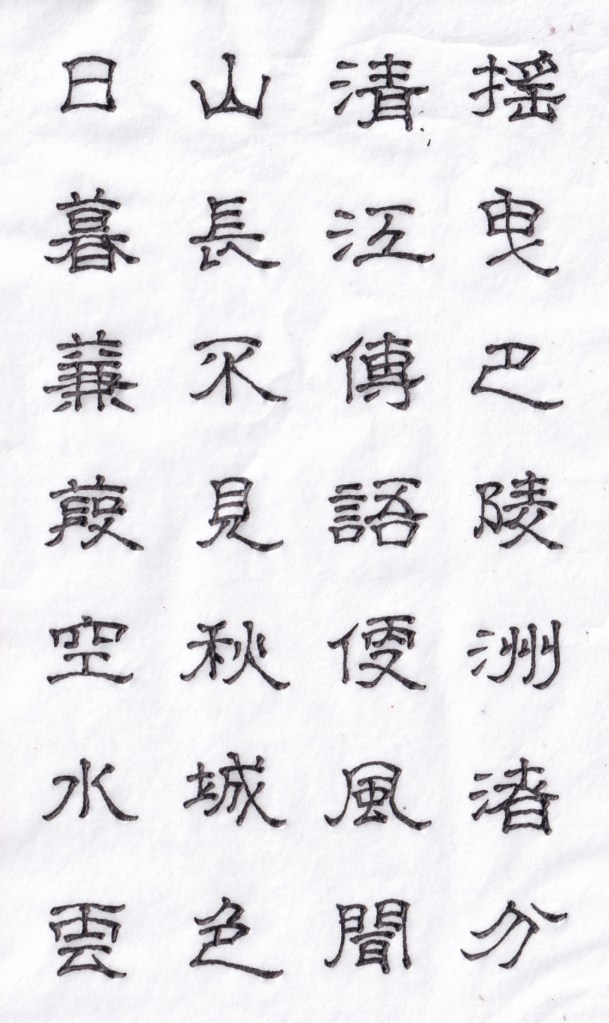 揺曳巴陵洲渚分
清江傳語便風聞
山長不見秋城色
日暮蒹葭空水雲